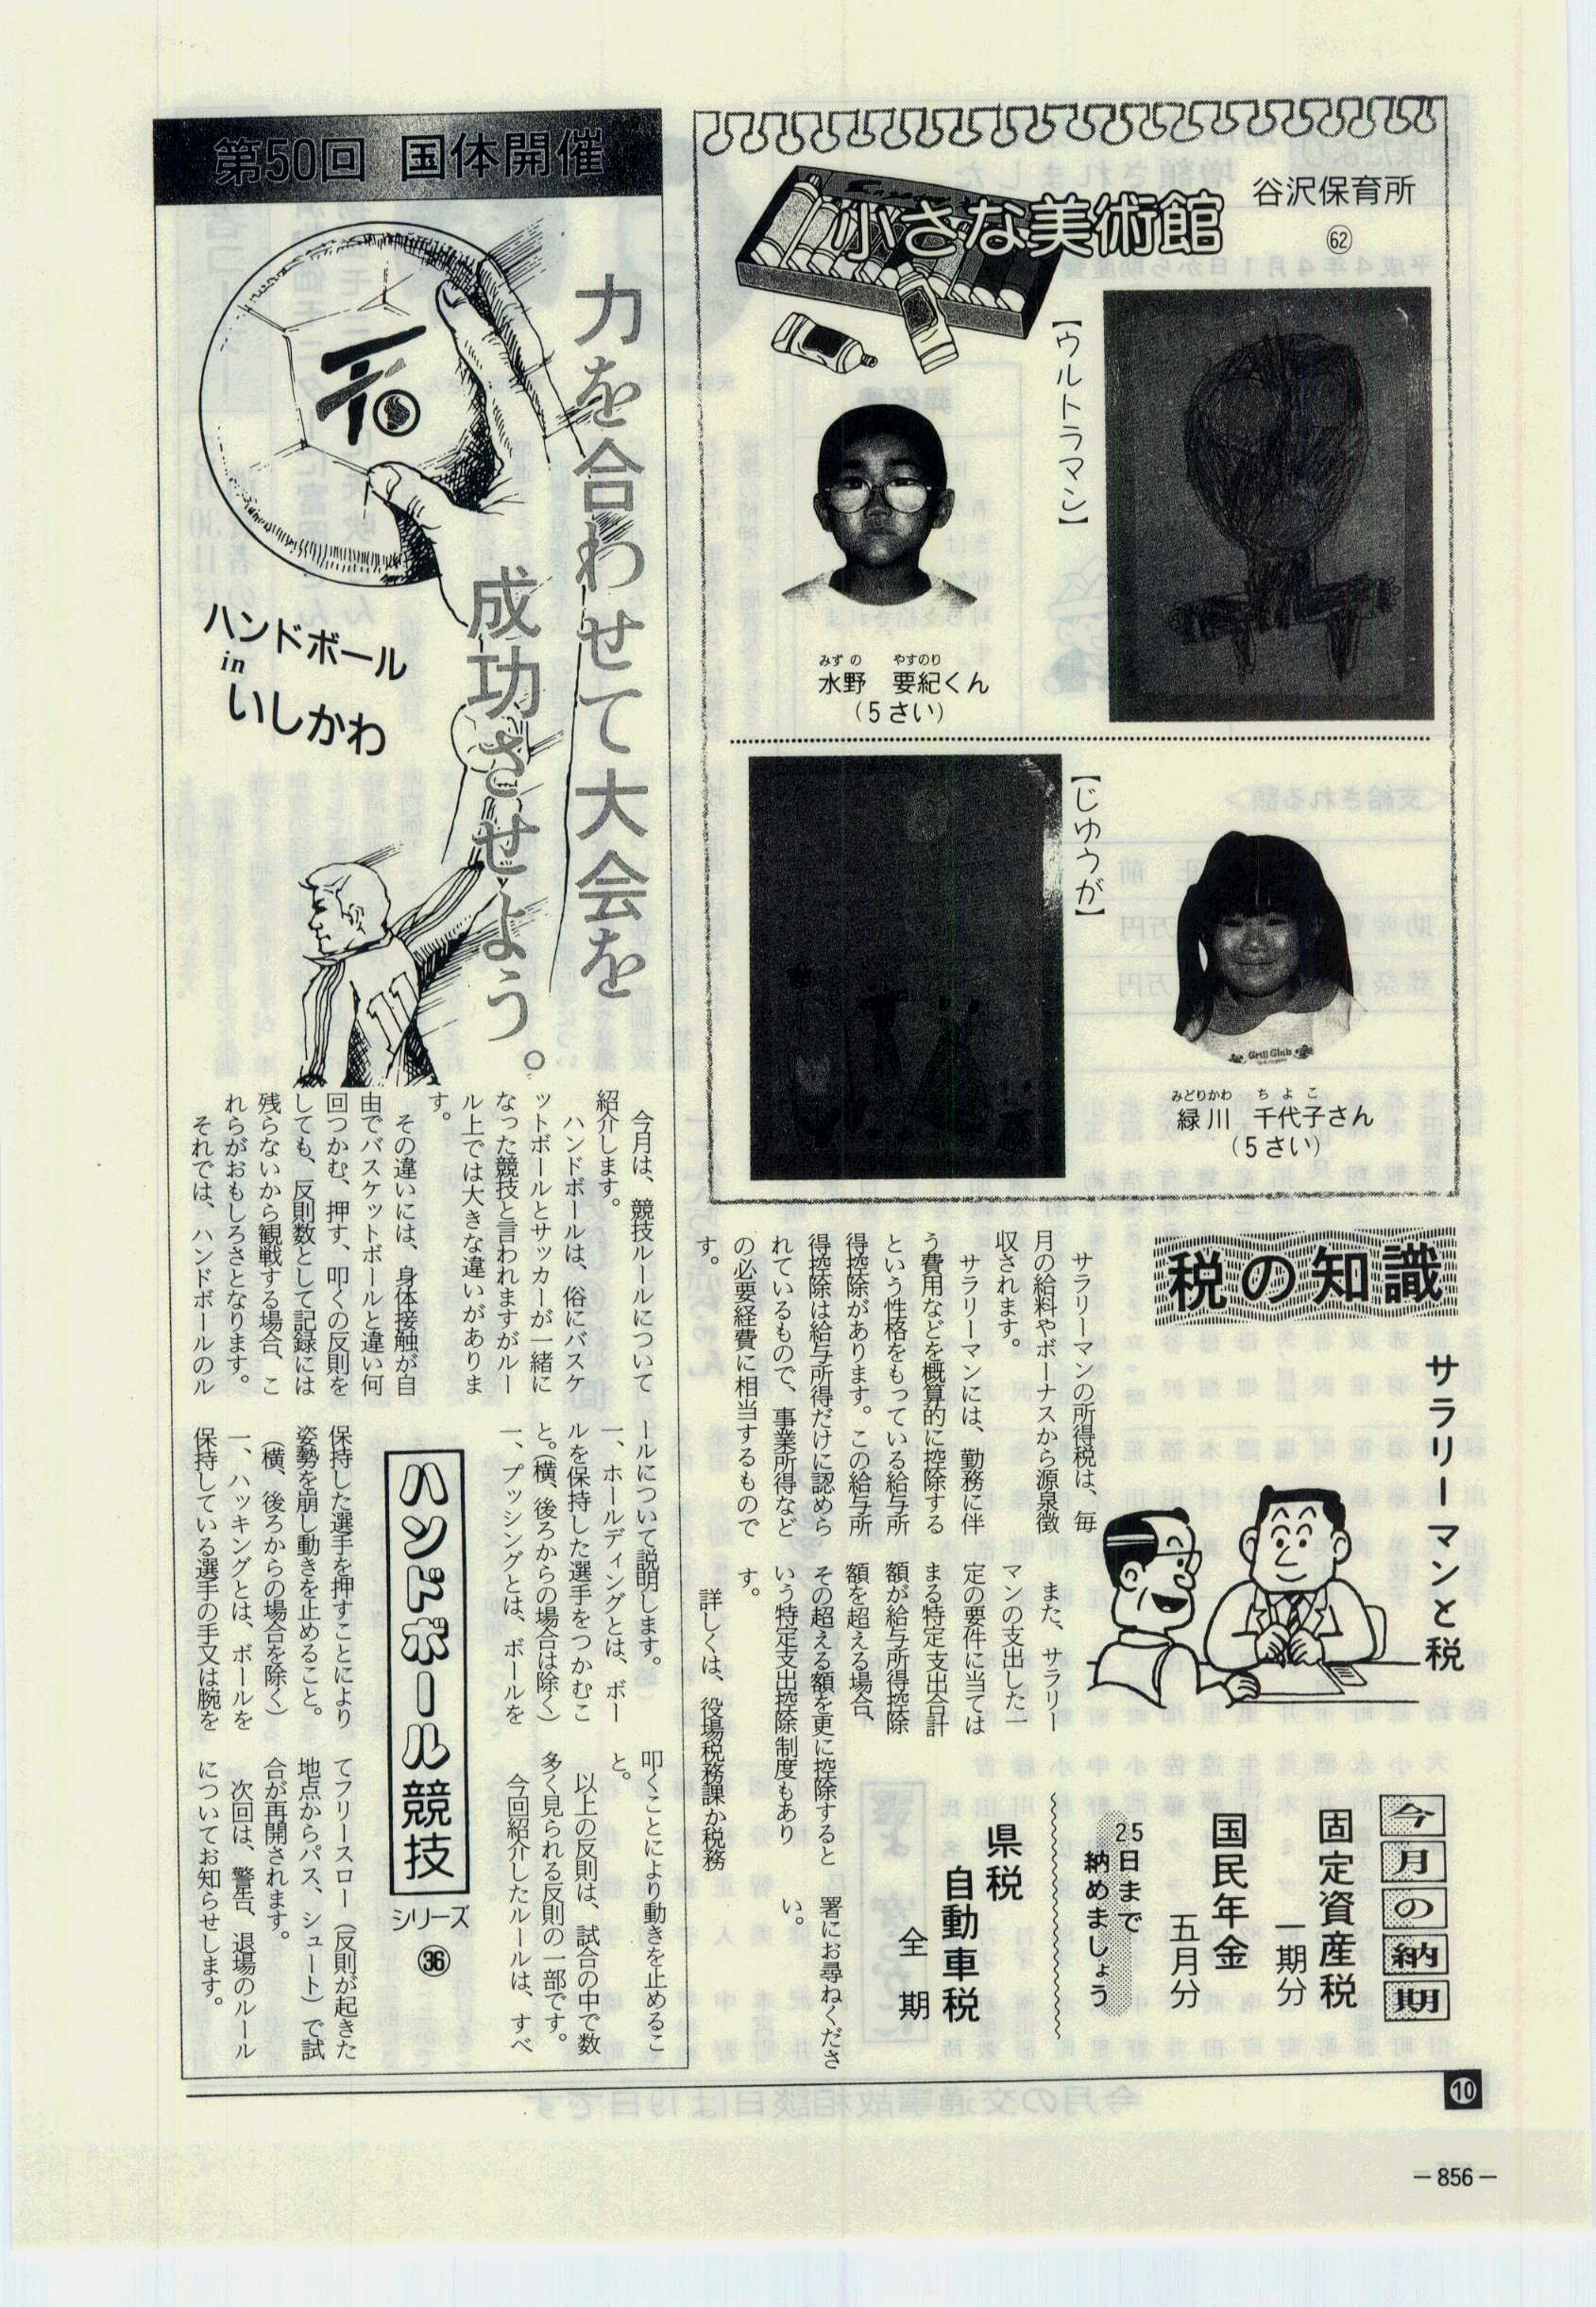 小さな美術館
谷沢保育所
62
【ウルトラマン】
みずの やすのり
水野 要紀くん
(5さい)
【じゆうが】
Grill Club
みどりかわ ちよこ
緑川 千代子さん
(5さい)
税の知識
サラリーマンと税
サラリーマンの所得税は、毎
月の給料やボーナスから源泉徴
収されます。
サラリーマンには、勤務に伴
う費用などを概算的に控除する
という性格をもっている給与所
得控除があります。この給与所
得控除は給与所得だけに認めら
れているもので、事業所得など
の必要経費に相当するもので
す。
また、サラリー
マンの支出した一
定の要件に当ては
まる特定支出合計
額が給与所得控除
額を超える場合、
その超える額を更に控除すると
いう特定支出控除制度もあり
す。
詳しくは、役場税務課か税務
署にお尋ねくださ
い。
今月の納期
固定資産税
一期分
国民年金
五月分
25日まで
納めましょう
県税
自動車税
全期
第50回 国体開催
力を合わせて大会を
成功させよう。
ハンドボール
in
いしかわ
11
今月は、競技ルールについて
紹介します。
ハンドボールは、俗にバスケ
ットボールとサッカーが一緒に
なった競技と言われますがルー
ル上では大きな違いがありま
す。
その違いには、身体接触が自
由でバスケットボールと違い何
回つかむ、押す、叩くの反則を
しても、反則数として記録には
残らないから観戦する場合、こ
れらがおもしろさとなります。
それでは、ハンドボールのル
ールについて説明します。
一、ホールディングとは、ボー
ルを保持した選手をつかむこ
と。(横、後ろからの場合は除く)
一、プッシングとは、ボールを
ハンドボール競技
シリーズ
36
保持した選手を押すことにより
姿勢を崩し動きを止めること。
(横、後ろからの場合を除く)
一、ハッキングとは、ボールを
保持している選手の手又は腕を
叩くことにより動きを止めるこ
と。
以上の反則は、試合の中で数
多く見られる反則の一部です。
今回紹介したルールは、すべ
てフリースロー(反則が起きた
地点からパス、シュート)で試
合が再開されます。
次回は、警告、退場のルール
についてお知らせします。
10
—856—